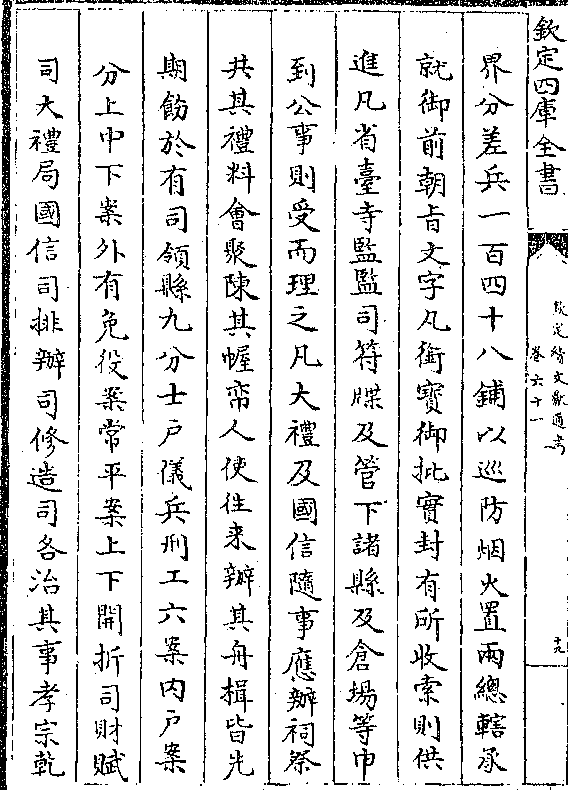 欽定四庫全書
欽定續文獻通考
卷六十一
十九
界分差兵一百四十八鋪以巡防烟火置兩總轄承
就御前朝旨文字凡銜寶御批實封有所收索則供
進凡省臺寺監監司符牒及管下諸縣及倉場等巾
到公事則受而理之凡大禮及國信隨事應辦祠祭
共其禮料會聚陳其幄帟人使徃来辦其舟楫皆先
期飭於有司領縣九分士戸儀兵刑工六案内戸案
分上中下案外有免役案常平案上下開折司財賦
司大禮局國信司排辦司修造司各治其事孝宗乾